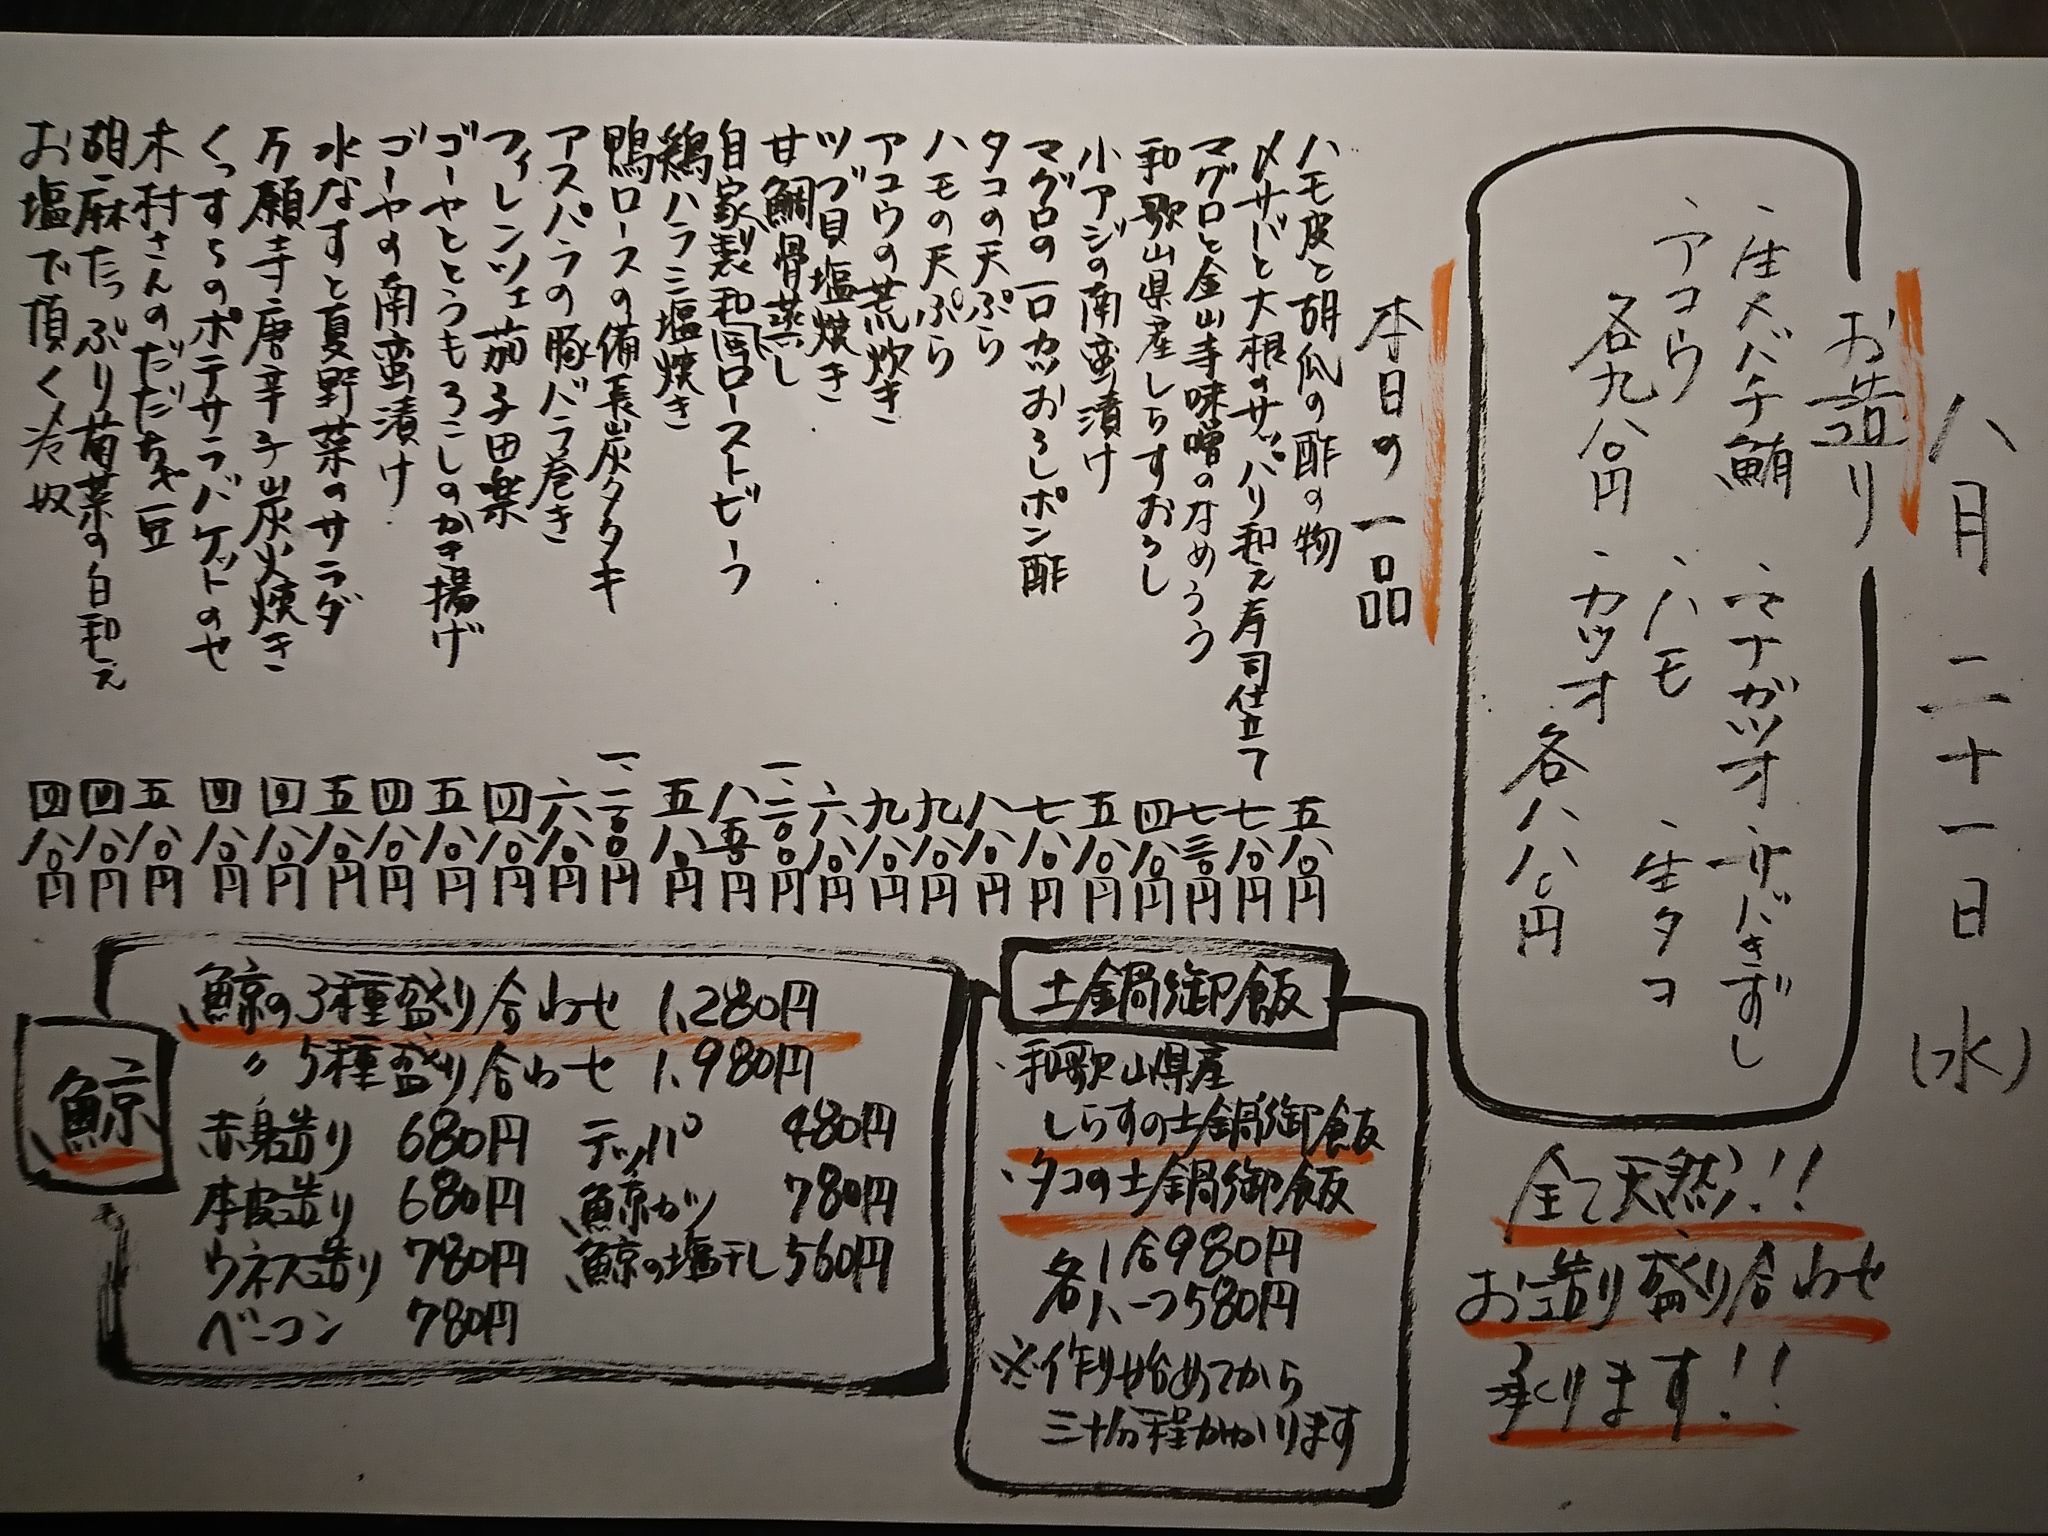 八月二十一日(水)
お造り
・生メバチ鮪 ・マナガツオ ・サバきずし
・アコウ ・ハモ ・生タコ
各九八〇円 ・カツオ 各八八〇円
全て天然!!
お造り盛り合わせ
承ります!!
本日の一品
ハモ皮と胡瓜の酢の物 五八〇円
〆サバと大根のサッパリ和え寿司仕立て 七八〇円
マグロと金山寺味噌のなめろう 七三〇円
和歌山県産しらすおろし 四八〇円
小アジの南蛮漬け 五八〇円
マグロの一口カツおろしポン酢 七八〇円
タコの天ぷら 八八〇円
ハモの天ぷら 九八〇円
アコウの荒炊き 九八〇円
ツブ貝塩焼き 六八〇円
甘鯛骨蒸し 一、二〇〇円
自家製和風ローストビーフ 八五〇円
鶏ハラミ塩焼き 五八〇円
鴨ロースの備長炭タタキ 一、二〇〇円
アスパラの豚バラ巻き 六八〇円
フィレンツェ茄子田楽 四八〇円
ゴーヤととうもろこしのかき揚げ 五八〇円
ゴーヤの南蛮漬け 四八〇円
水なすと夏野菜のサラダ 五八〇円
万願寺唐辛子炭火焼き 四八〇円
くっすらのポテサラバケットのせ 四八〇円
木村さんのだだちゃ豆 五八〇円
胡麻たっぷり菊菜の白和え 四八〇円
お塩で頂く冷奴 四八〇円
土鍋御飯
・和歌山県産
しらすの土鍋御飯
・タコの土鍋御飯
各1合980円
各ハーフ580円
※作り始めてから
三十分程かかります
鯨
鯨の3種盛り合わせ 1,280円
〃 5種盛り合わせ 1,980円
赤身造り 680円 テッパ 480円
本皮造り 680円 鯨カツ 780円
ウネス造り 780円 鯨の塩干し 560円
ベーコン 780円